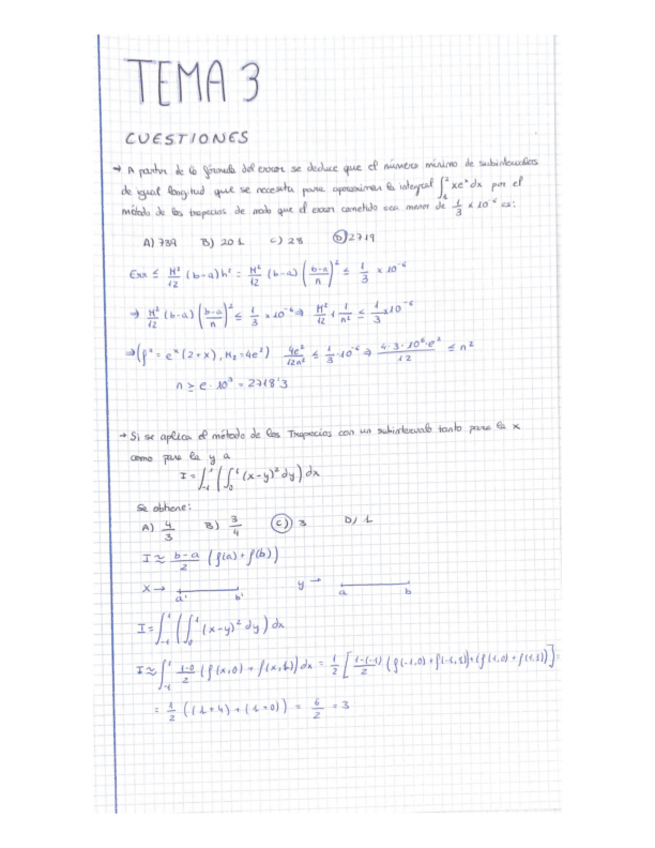 TEMA 3
CUESTIONES
→ A partir de la fórmula del error se deduce que el número mínimo de subintervalos
de igual longitud que se necesita para aproximar la integral ∫₁² xeˣdx por el
método de los trapecios de modo que el error cometido sea menor de 1/3 × 10⁻⁶ es:
A) 739 B) 201 C) 28 D) 2719
Err ≤ M²/12 (b-a)h² = M²/12 (b-a) ((b-a)/n)² ≤ 1/3 × 10⁻⁶
→ M²/12 (b-a) ((b-a)/n)² ≤ 1/3 × 10⁻⁶ ⇒ M²/12 · 1/n² ≤ 1/3 × 10⁻⁶
⇒ (f'' = eˣ(2+x), M₂ = 4e²) 4e²/12n² ≤ 1/3 · 10⁻⁶ ⇒ 4·3·10⁶·e²/12 ≤ n²
n ≥ e · 10³ = 2718'3
→ Si se aplica el método de los Trapecios con un subintervalo tanto para la x
como para la y a
I = ∫₋₁¹ (∫₀¹ (x-y)² dy) dx
Se obtiene:
A) 4/3 B) 3/4 C) 3 D) 1
I ≈ (b-a)/2 (f(a) + f(b))
x → a' b' y → a b
I = ∫₋₁¹ (∫₀¹ (x-y)² dy) dx
I ≈ ∫₋₁¹ (1-0)/2 (f(x,0) + f(x,1)) dx = 1/2 [(1-(-1))/2 (f(-1,0) + f(-1,1)) + (f(1,0) + f(1,1))] =
= 1/2 ((1+4) + (1+0)) = 6/2 = 3